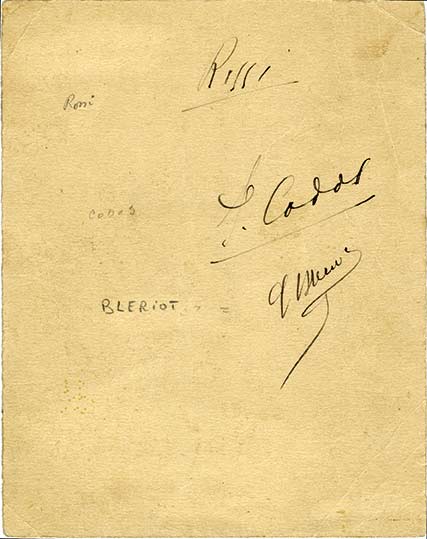 Rossi
Rossi
P. Codos
CODOS
BLERIOT - =